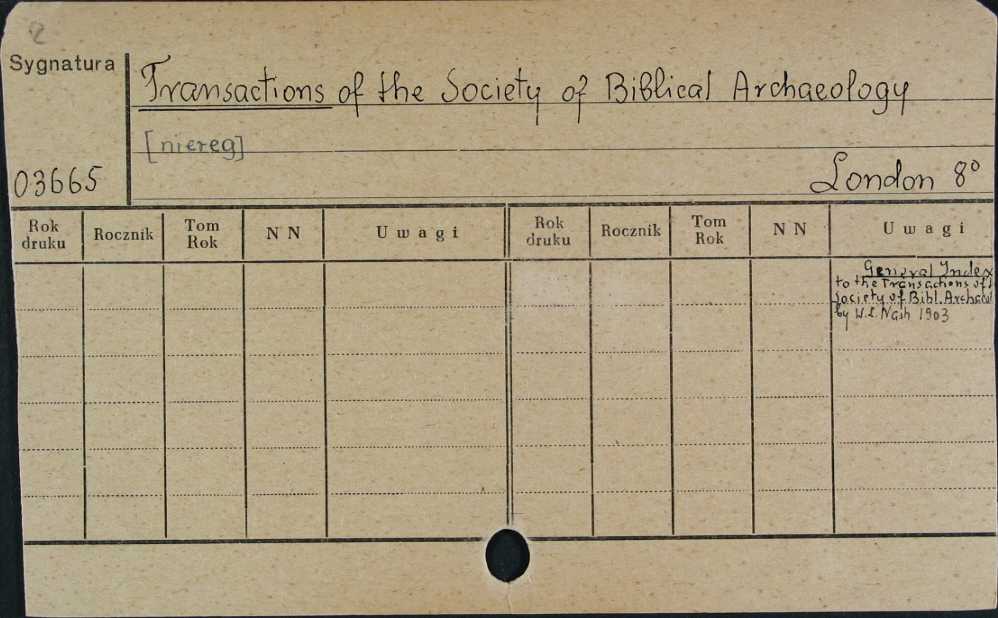 2
Sygnatura
Transactions of the Society of Biblical Archaeology
[niereg]
03665
London 8°
Rok druku Rocznik Tom Rok N N Uwagi Rok druku Rocznik Tom Rok N N Uwagi
General Index
to the Transactions of
Society of Bibl. Archaeol
by W. L. Nash 1903